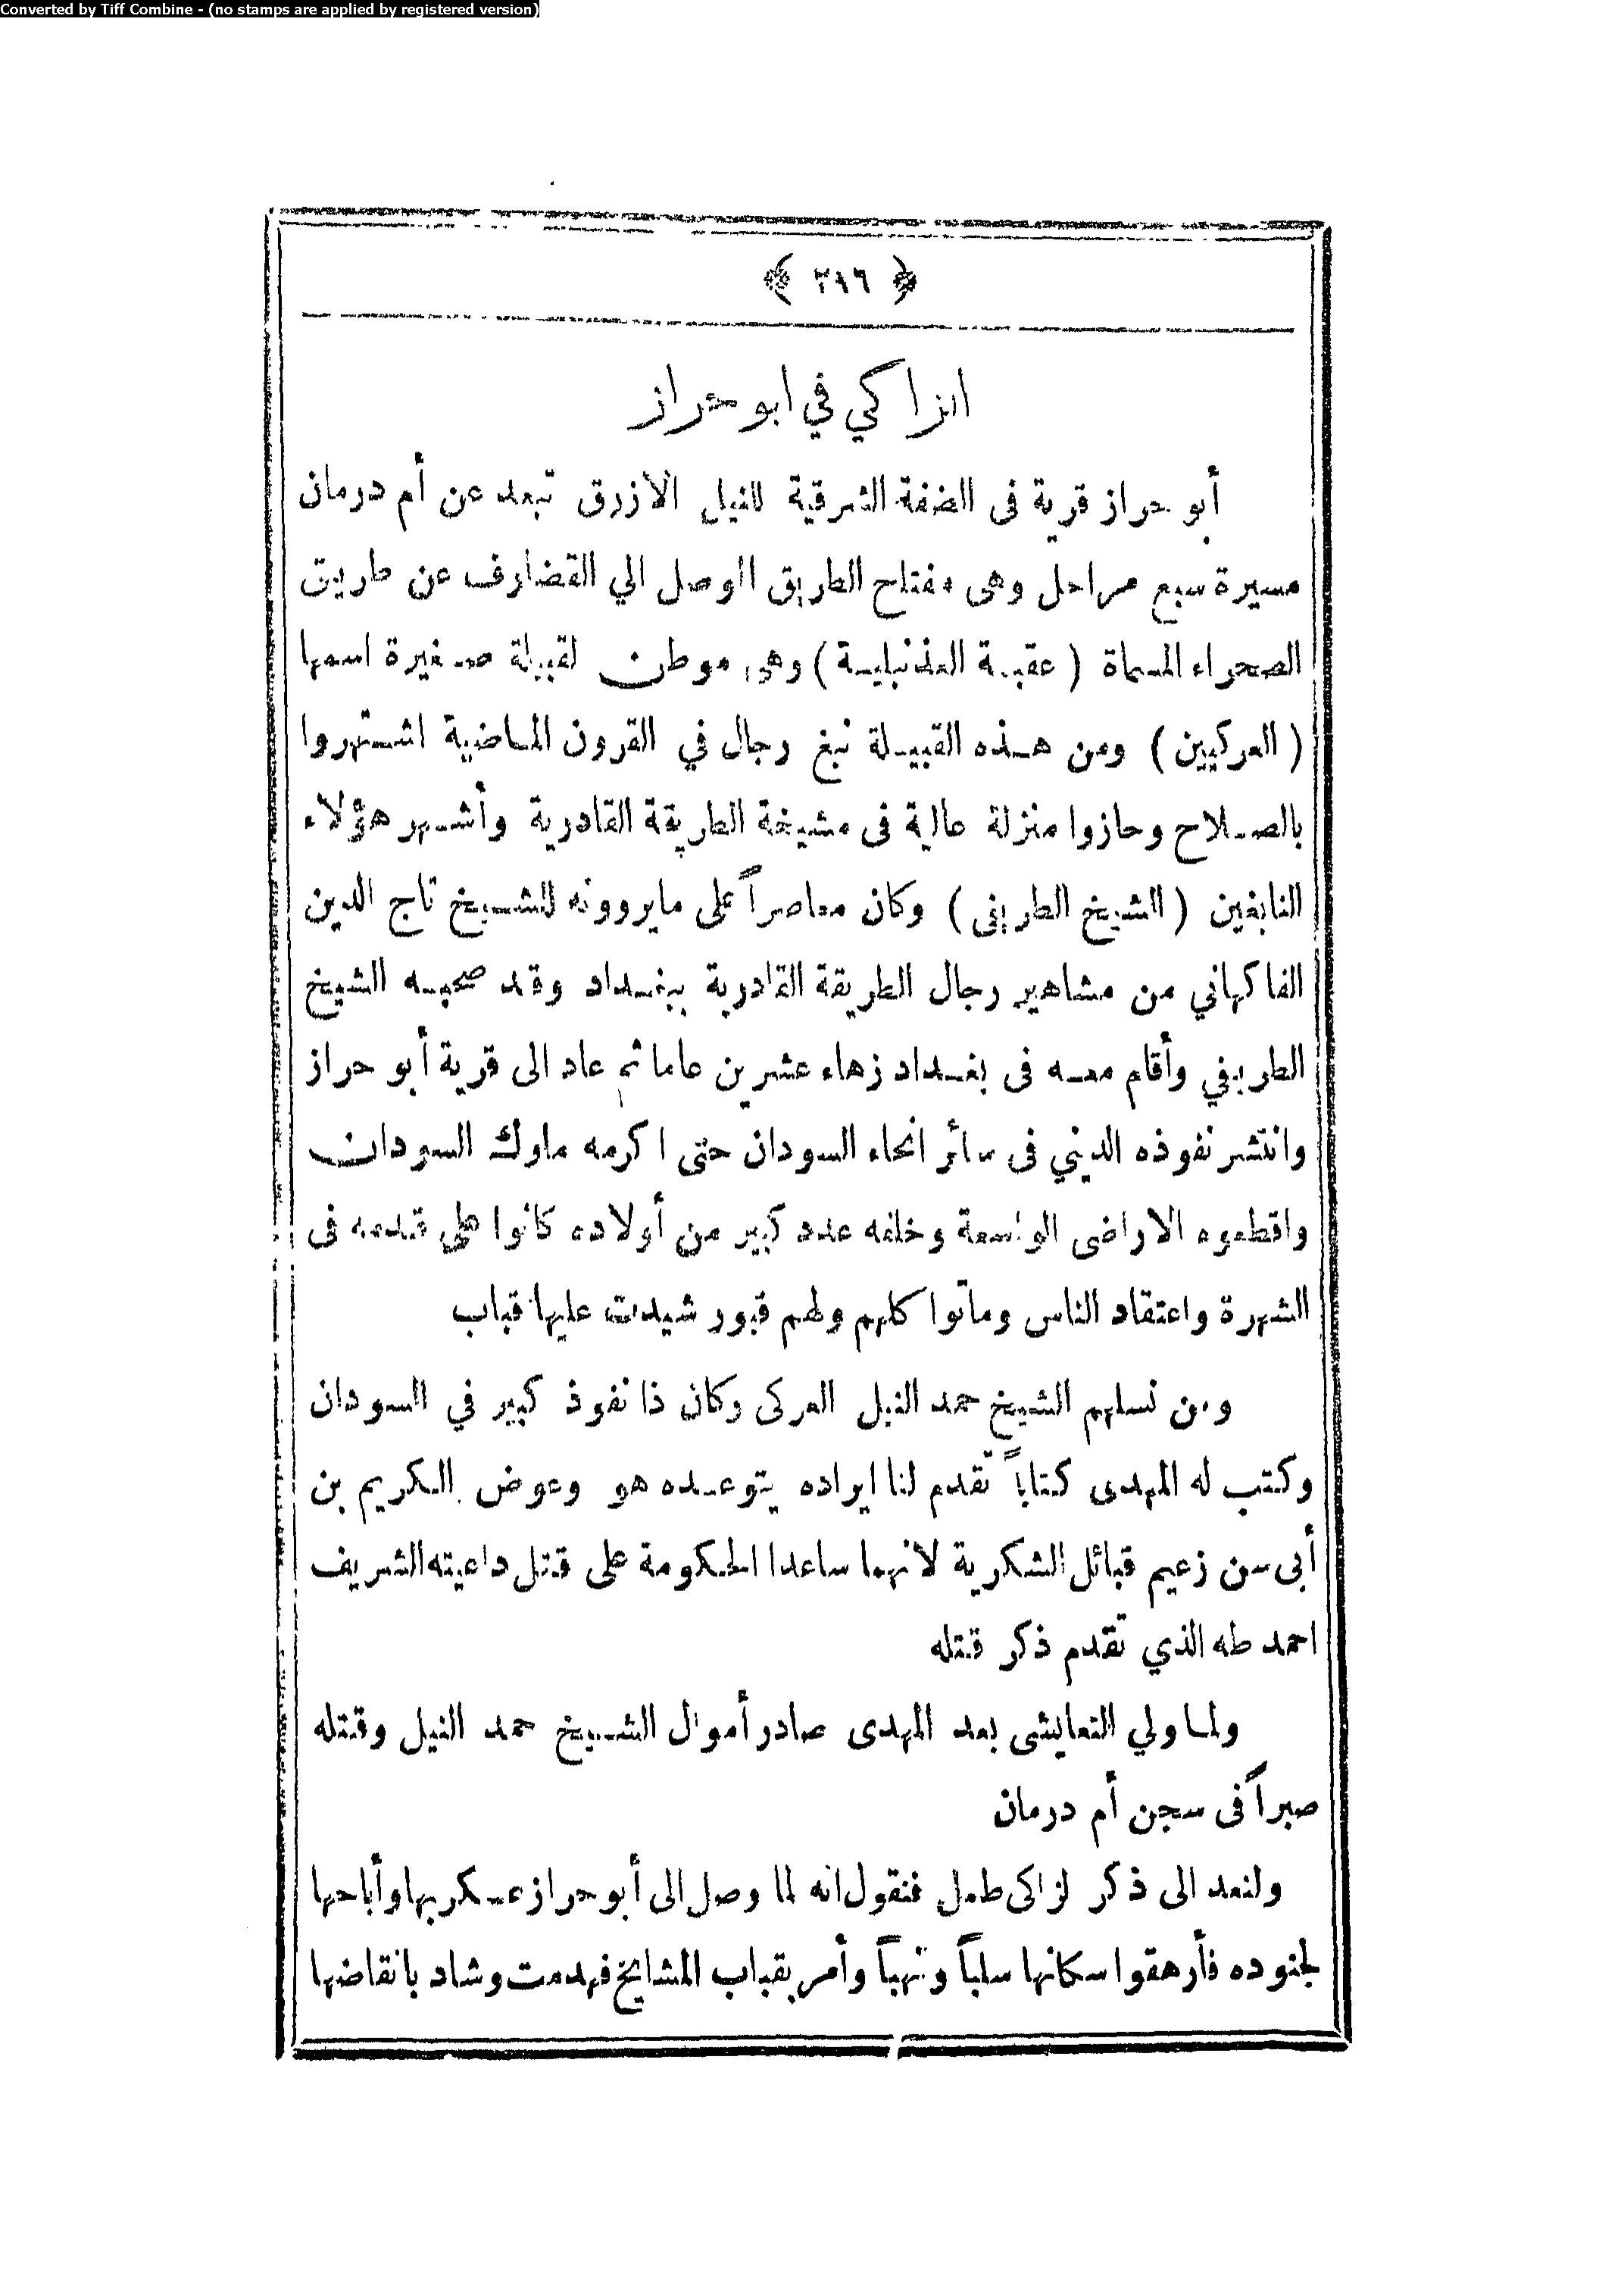 Converted by Tiff Combine - (no stamps are applied by registered version)
﴿ ٣١٦ ﴾
الزاكي في ابو حراز
أبو حراز قرية فى الضفة الشرقية للنيل الازرق تبعد عن أم درمان
مسيرة سبع مراحل وهى مفتاح الطريق الموصل الي القضارف عن طريق
الصحراء المسماة ( عقبة ) وهى موطن لقبيلة صغيرة اسمها
( العركيين ) ومن هذه القبيلة نبغ رجال في القرون الماضية اشتهروا
بالصلاح وحازوا منزلة عالية فى مشيخة الطريقة القادرية وأشهر هؤلاء
النابغين ( الشيخ الطريفى ) وكان معاصراً على مايروونه للشيخ تاج الدين
الفاكهاني من مشاهير رجال الطريقة القادرية ببغداد وقد صحبه الشيخ
الطريفي وأقام معه فى بغداد زهاء عشرين عاما ثم عاد الى قرية أبو حراز
وانتشر نفوذه الديني فى سائر انحاء السودان حتى اكرمه ملوك السودان
واقطعوه الاراضى الواسعة وخلفه عدد كبير من أولاده كانوا على قدمه فى
الشهرة واعتقاد الناس وماتوا كلهم ولهم قبور شيدت عليها قباب
ومن نسلهم الشيخ حمد النيل العركى وكان ذا نفوذ كبير في السودان
وكتب له المهدى كتاباً تقدم لنا ايراده يتوعده هو وعوض الكريم بن
أبى سن زعيم قبائل الشكرية لانهما ساعدا الحكومة على قتل داعيته الشريف
احمد طه الذي تقدم ذكر قتله
ولما ولي التعايشى بعد المهدى صادر أموال الشيخ حمد النيل وقتله
صبراً فى سجن أم درمان
ولنعد الى ذكر لزاكى طمل فنقول انه لما وصل الى أبو حراز عسكر بها وأباحها
لجنوده فأرهقوا سكانها سلباً ونهباً وأمر بقباب المشايخ فهدمت وشاد بانقاضها